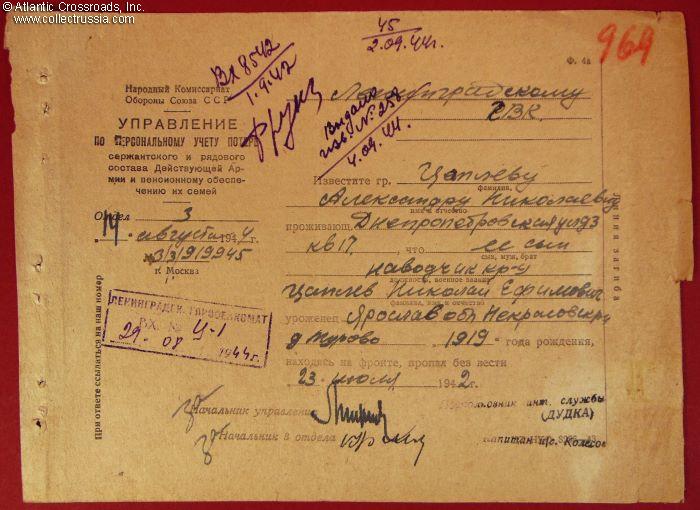 © Atlantic Crossroads, Inc.
www.collectrussia.com
45
2.09.44г.
969
Ф. 4а
Вх 8542
1.9.42
Выдано
изв. № 258
4.09.44.
Народный Комиссариат
Обороны Союза ССР
УПРАВЛЕНИЕ
ПО ПЕРСОНАЛЬНОМУ УЧЕТУ ПОТЕРЬ
сержантского и рядового
состава Действующей Ар-
мии и пенсионному обеспе-
чению их семей
Отдел 3
14 августа 1944г.
№3/3/919945
г. Москва
ЛЕНИНГРАДСК. ГОРВОЕНКОМАТ
ВХ. № Ц-1
29 08 1944г.
При ответе ссылаться на наш номер
Ленинградскому
ГВК.
Известите гр. Цаплеву
фамилия,
Александру Николаевну
имя и отчество
проживающ. Днепропетровская ул д3
кв 17, что ее сын
сын, муж, брат
наводчик кр-ц
должность, военное звание
Цаплев Николай Ефимович
фамилия, имя и отчество
уроженец Ярослав обл Некрасовский
д Турово 1919 года рождения,
находясь на фронте, пропал без вести
23 июля 1942г.
Начальник управления
Подполковник инт. службы
(ДУДКА)
Начальник 3 отдела
Капитан Колесов
Линия загиба